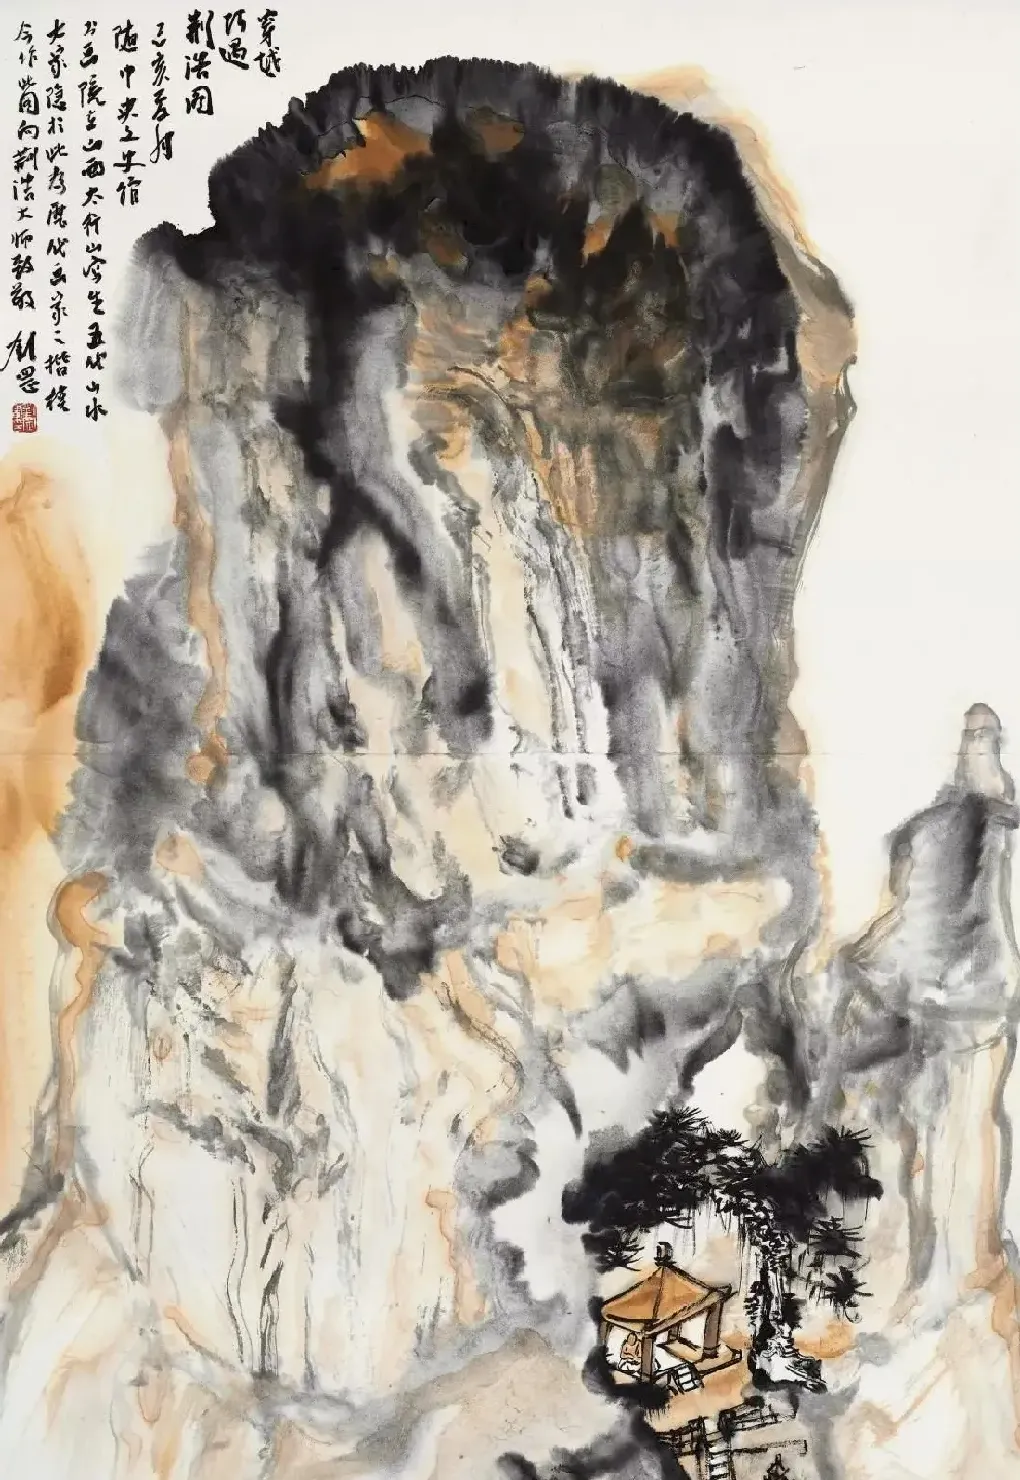 穿越
巧遇
荆浩图
己亥
随中央文史馆
书画院在山西太行山写生五代山水
大家隐于此为歷代画家之楷模
今作此图向荆浩大师致敬